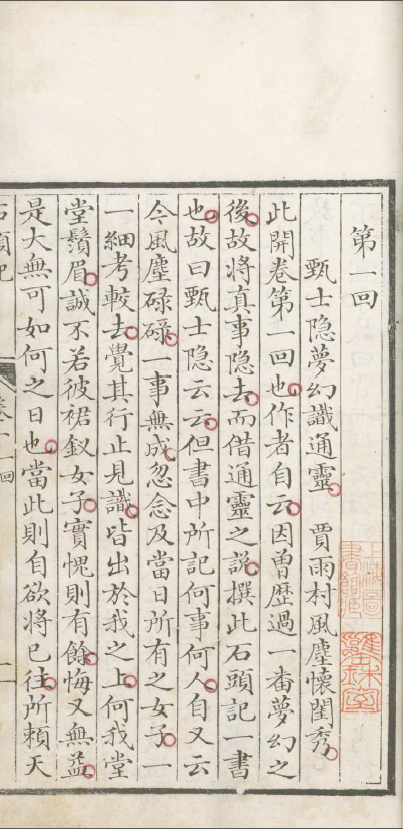 第一回
甄士隐夢幻識通靈 賈雨村風塵懷閨秀
此開卷第一回也作者自云因曾歷過一番夢幻之
後故將真事隐去而借通靈之説撰此石頭記一書
也故曰甄士隐云云但書中所記何事何人自又云
今風塵碌碌一事無成忽念及當日所有之女子一
一細考較去覺其行止見識皆出於我之上何我堂
堂鬚眉誠不若彼裙釵女子實愧則有餘悔又無益
是大無可如何之日也當此則自欲將已往所頼天
石頭記
上海圖書館藏